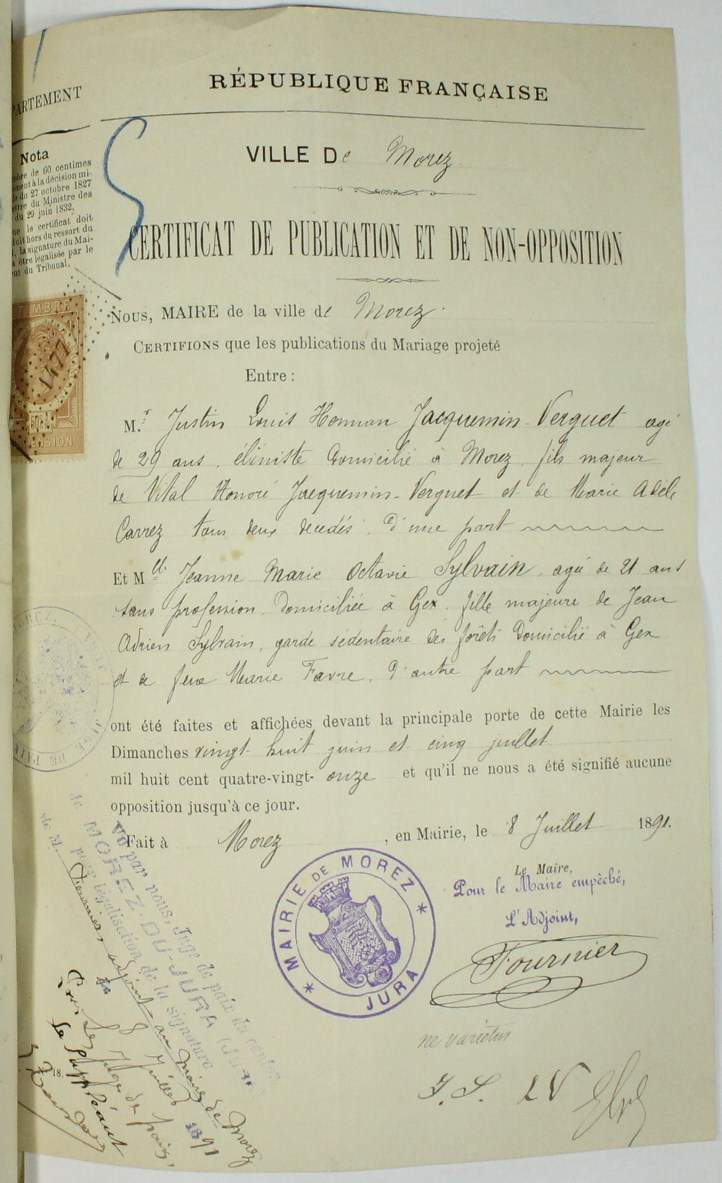 RÉPUBLIQUE FRANÇAISE
PARTEMENT
Nota
bre de 60 centimes
ment à la décision mi-
du 27 octobre 1827
tre du Ministre des
du 29 juin 1832.
ue le certificat doit
uit hors du ressort du
l, la signature du Mai-
a être légalisée par le
ent du Tribunal.
VILLE De Morez
CERTIFICAT DE PUBLICATION ET DE NON-OPPOSITION
1477
NOUS, MAIRE de la ville de Morez.
CERTIFIONS que les publications du Mariage projeté
Entre :
M.r Justin Louis Herman Jacquemin-Verguet agé
de 29 ans, ébéniste domicilié à Morez, fils majeur
de Vital Honoré Jacquemin-Verguet et de Marie Adèle
Carrez tous deux decedés, d'une part
Et Mlle Jeanne Marie Octavie Sylvain, agée de 21 ans
sans profession, domiciliée à Gex, fille majeure de Jean
Adrien Sylvain, garde sedentaire des forêts domicilié à Gex
et de feue Marie Favre, d'autre part
ont été faites et affichées devant la principale porte de cette Mairie les
Dimanches vingt-huit juin et cinq juillet
mil huit cent quatre-vingt-onze et qu'il ne nous a été signifié aucune
opposition jusqu'à ce jour.
Fait à Morez, en Mairie, le 8 Juillet 1891.
Le Maire,
Pour le Maire empêché,
L'Adjoint,
Fournier
MAIRIE DE MOREZ
JURA
Vu par nous, Juge de paix du canton
de MOREZ-DU-JURA (Jura)
pour légalisation de la signature
de M. Fournier, adjoint au Maire de Morez
8 Juillet 1891
Pour le Juge de paix,
Le Suppléant
ne varietur
J. S. LV